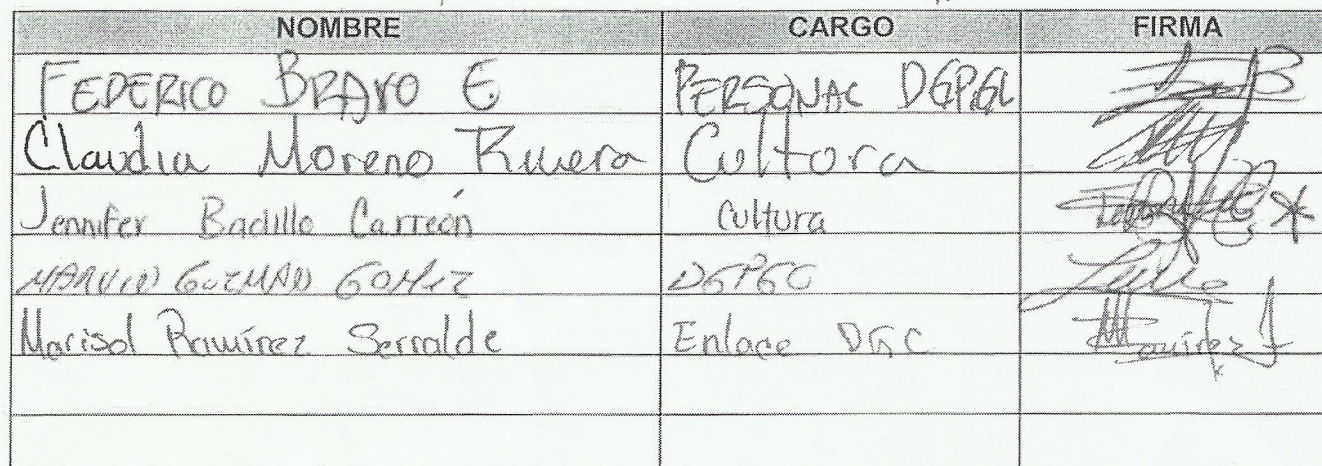 NOMBRE CARGO FIRMA
FEDERICO BRAVO E PERSONAL DGPGL
Claudia Moreno Rivera Cultora
Jennifer Badillo Carreón Cultura
MARVIN GUZMAN GOMEZ
Marisol Ramírez Serralde Enlace DGC Ramírez